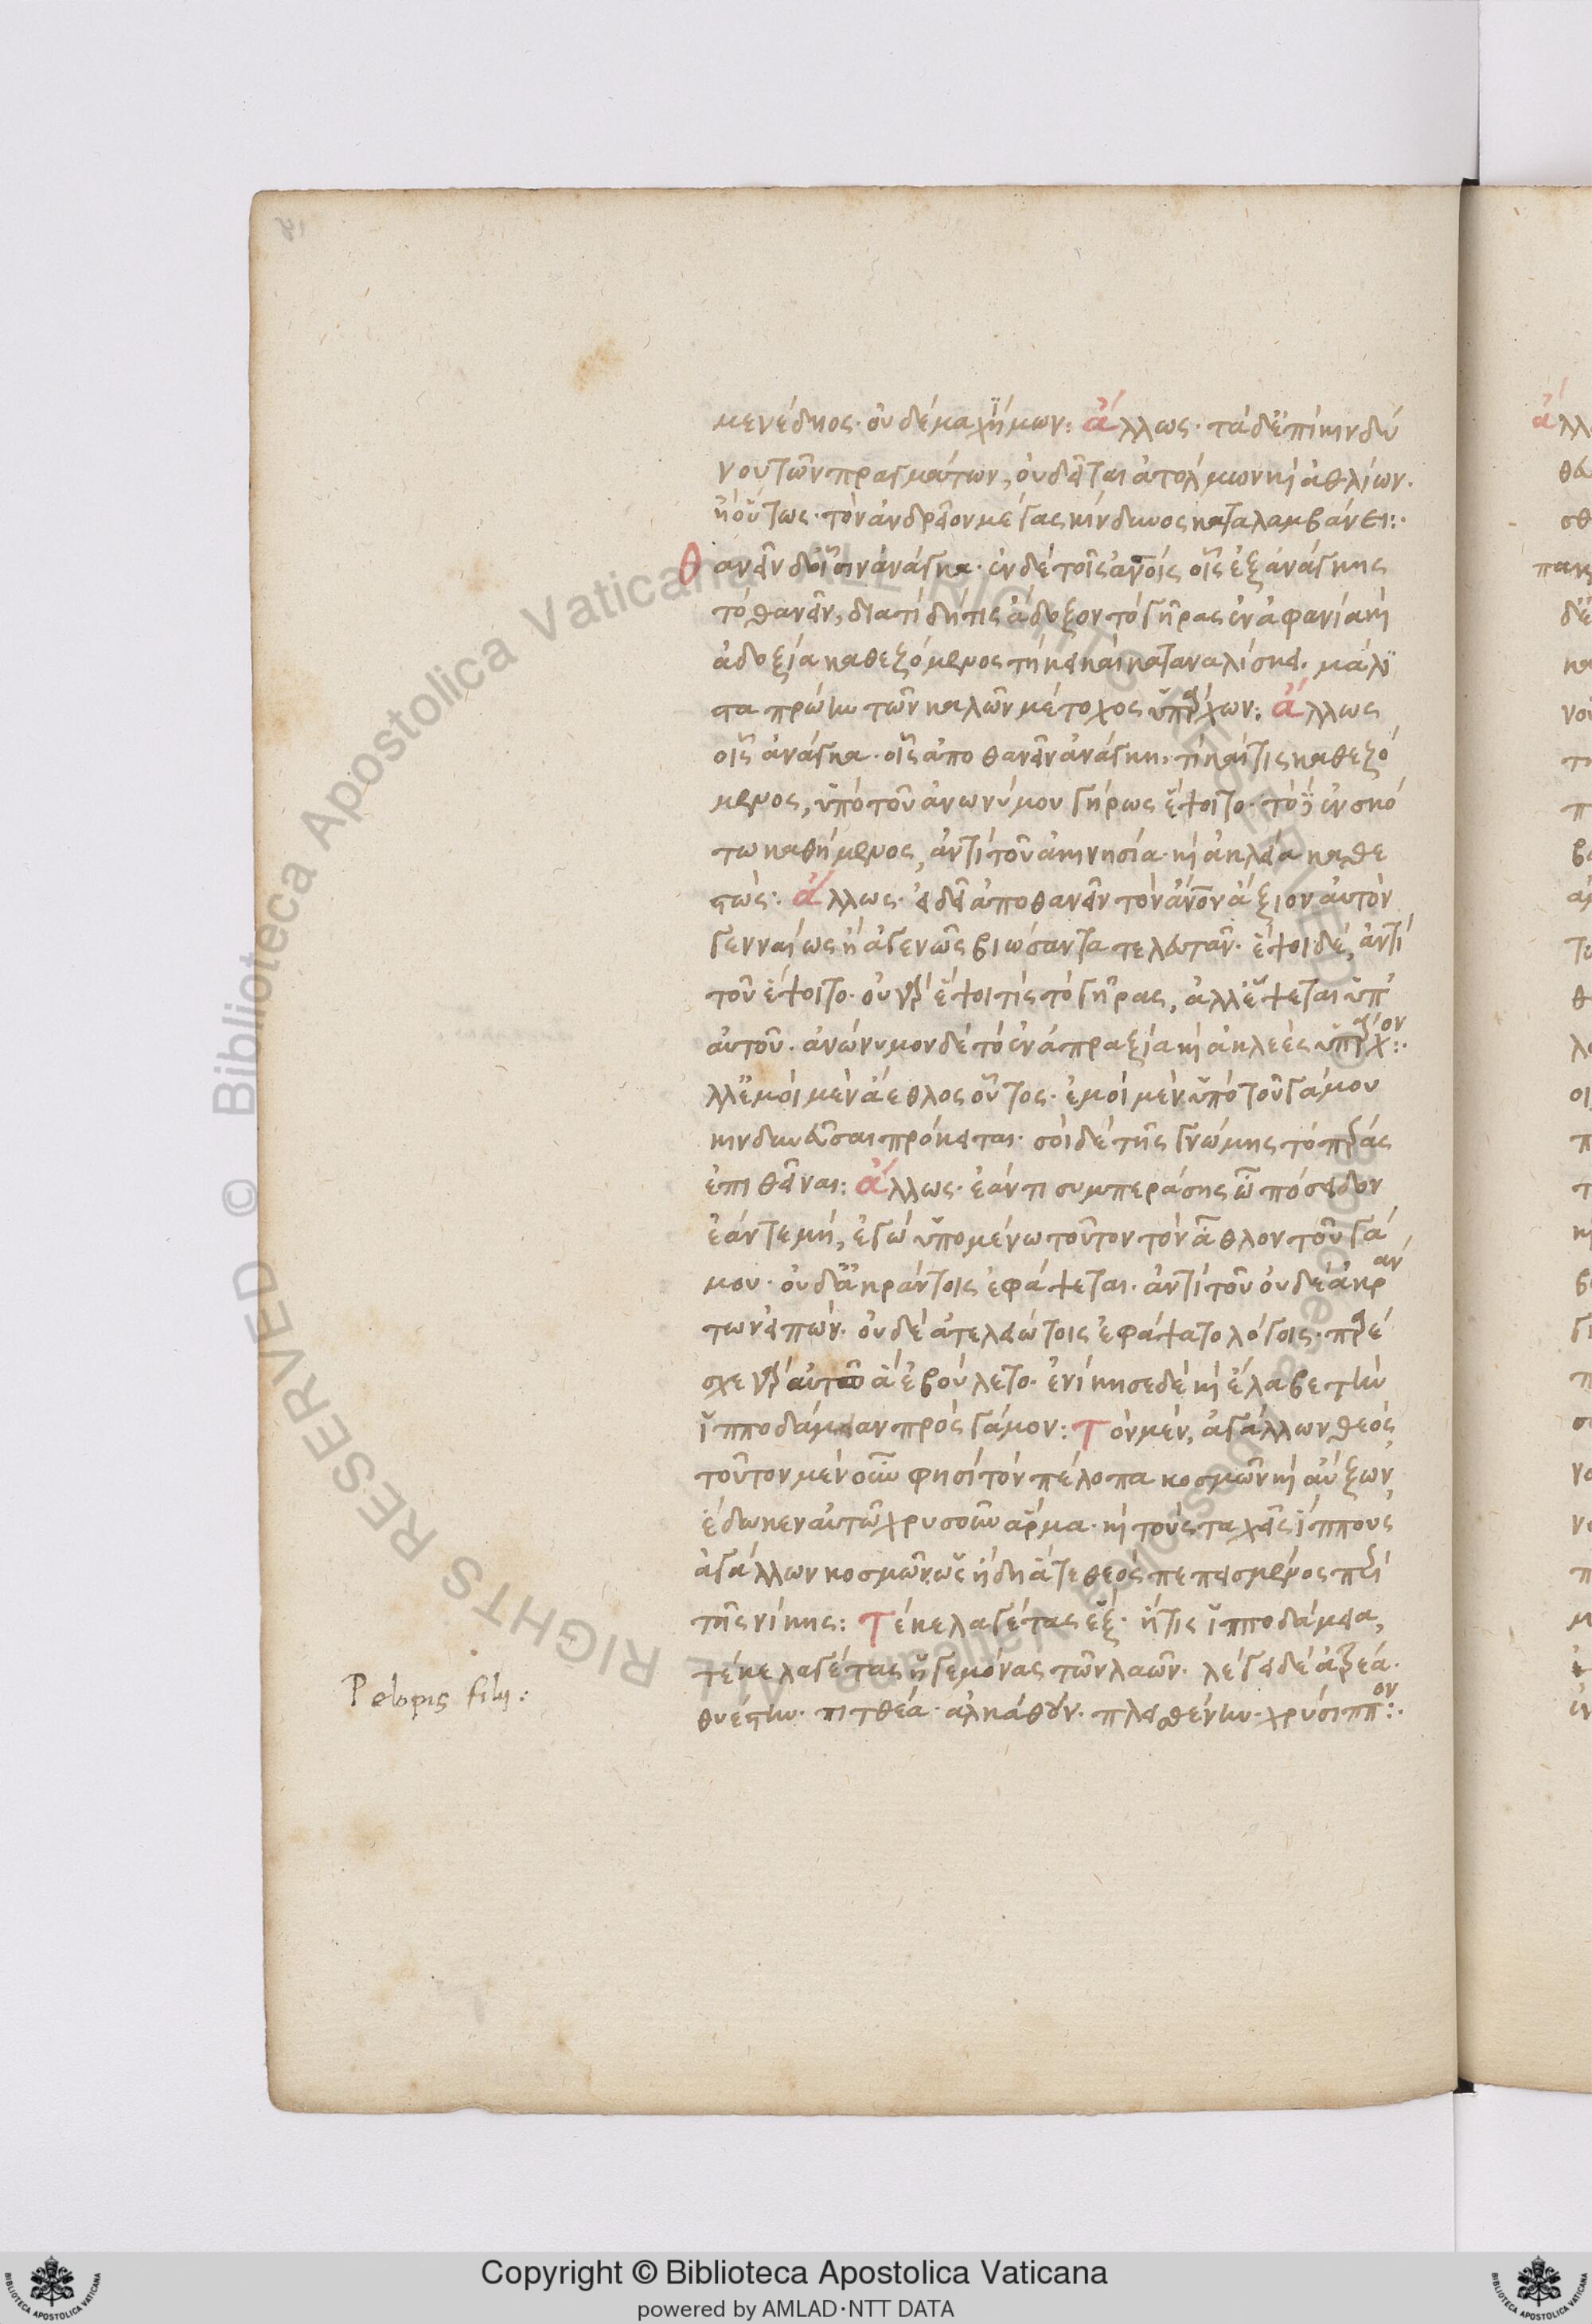 μενέδηος· οὐδέ μαχήμων: ἄλλως· τὰ δ' ἐπικινδύ
νου τῶν πραγμάτων, οὐ δεῖται ἀτόλμων καὶ ἀθλίων.
ἢ οὕτως· τὸν ἀνδρεῖον μέγας κίνδυνος καταλαμβάνει:·
Θανεῖν δ' οἷσιν ἀνάγκα· ἐν δὲ τοῖς ἀνοις οἷς ἐξ ἀνάγκης
τὸ θανεῖν, διατί δή τις ἄδοξον τὸ γῆρας ἐν ἀφανία καὶ
ἀδοξία καθεζόμενος τήκει καὶ καταναλίσκει. μάλι
στα πρώτην τῶν καλῶν μέτοχος ὑπάρχων: ἄλλως
οἷς ἀνάγκα· οἷς ἀποθανεῖν ἀνάγκη. τί καί τις καθεζό
μενος, ὑπὸ τοῦ ἀνωνύμου γήρως ἕψοιτο· τὸ δὲ ἐν σκό
τω καθήμενος, ἀντὶ τοῦ ἀκινησία καὶ ἀκλεία καθε
στώς: ἄλλως· εἰ δεῖ ἀποθανεῖν τὸν ἄνον ἄξιον αὐτὸν
γενναίως ἢ ἀγενῶς βιώσαντα τελευτᾶν. ἕψοι δέ, ἀντὶ
τοῦ ἕψοιτο· οὐ γὰρ ἕψοι τίς τὸ γῆρας, ἀλλ' ἕψεται ὑπ'
αὐτοῦ. ἀνώνυμον δὲ τὸ ἐν ἀπραξία καὶ ἀκλεὲς ὑπάρχον:·
λλ' ἐμοὶ μὲν ἄεθλος οὗτος· ἐμοὶ μὲν ὑπὸ τοῦ γάμου
κινδυνεῦσαι πρόκειται· σοὶ δὲ τῆς γνώμης τὸ πέρας
ἐπιθεῖναι: ἄλλως· ἐάν τι συμπεράσης ὦ πόσειδον
ἐάν τε μή, ἐγὼ ὑπομένω τοῦτον τὸν ἆθλον τοῦ γά
μου· οὐδ' ἀκράντοις ἐφάψεται· ἀντὶ τοῦ οὐδὲ ἄκραν
των εἰπών· οὐδὲ ἀτελειώτοις ἐφάψατο λόγοις· παρέ
σχε γὰρ αὐτῶ ἃ ἐβούλετο· ἐνίκησε δὲ καὶ ἔλαβε τὴν
ἱπποδάμειαν πρὸς γάμον: Τὸν μὲν, ἀγάλλων θεός
τοῦτον μὲν οὖν φησὶ τὸν πέλοπα κοσμῶν καὶ αὔξων
ἔδωκεν αὐτῶ χρυσοῦν ἅρμα· καὶ τοὺς ταχεῖς ἵππους
ἀγάλλων κοσμῶν, ὡς ἤδη ἅτε θεὸς πεπεισμένος περὶ
τῆς νίκης: Τέκε λαγέτας ἕξ· ἥτις ἱπποδάμεια,
τέκε λαγέτας ἡγεμόνας τῶν λαῶν· λέγει δὲ ἀτρέα·
θυέστην· πιτθέα· ἀλκάθουν· πλεισθένην· χρύσιππον:·
Pelopis filij:
Copyright © Biblioteca Apostolica Vaticana
powered by AMLAD·NTT DATA